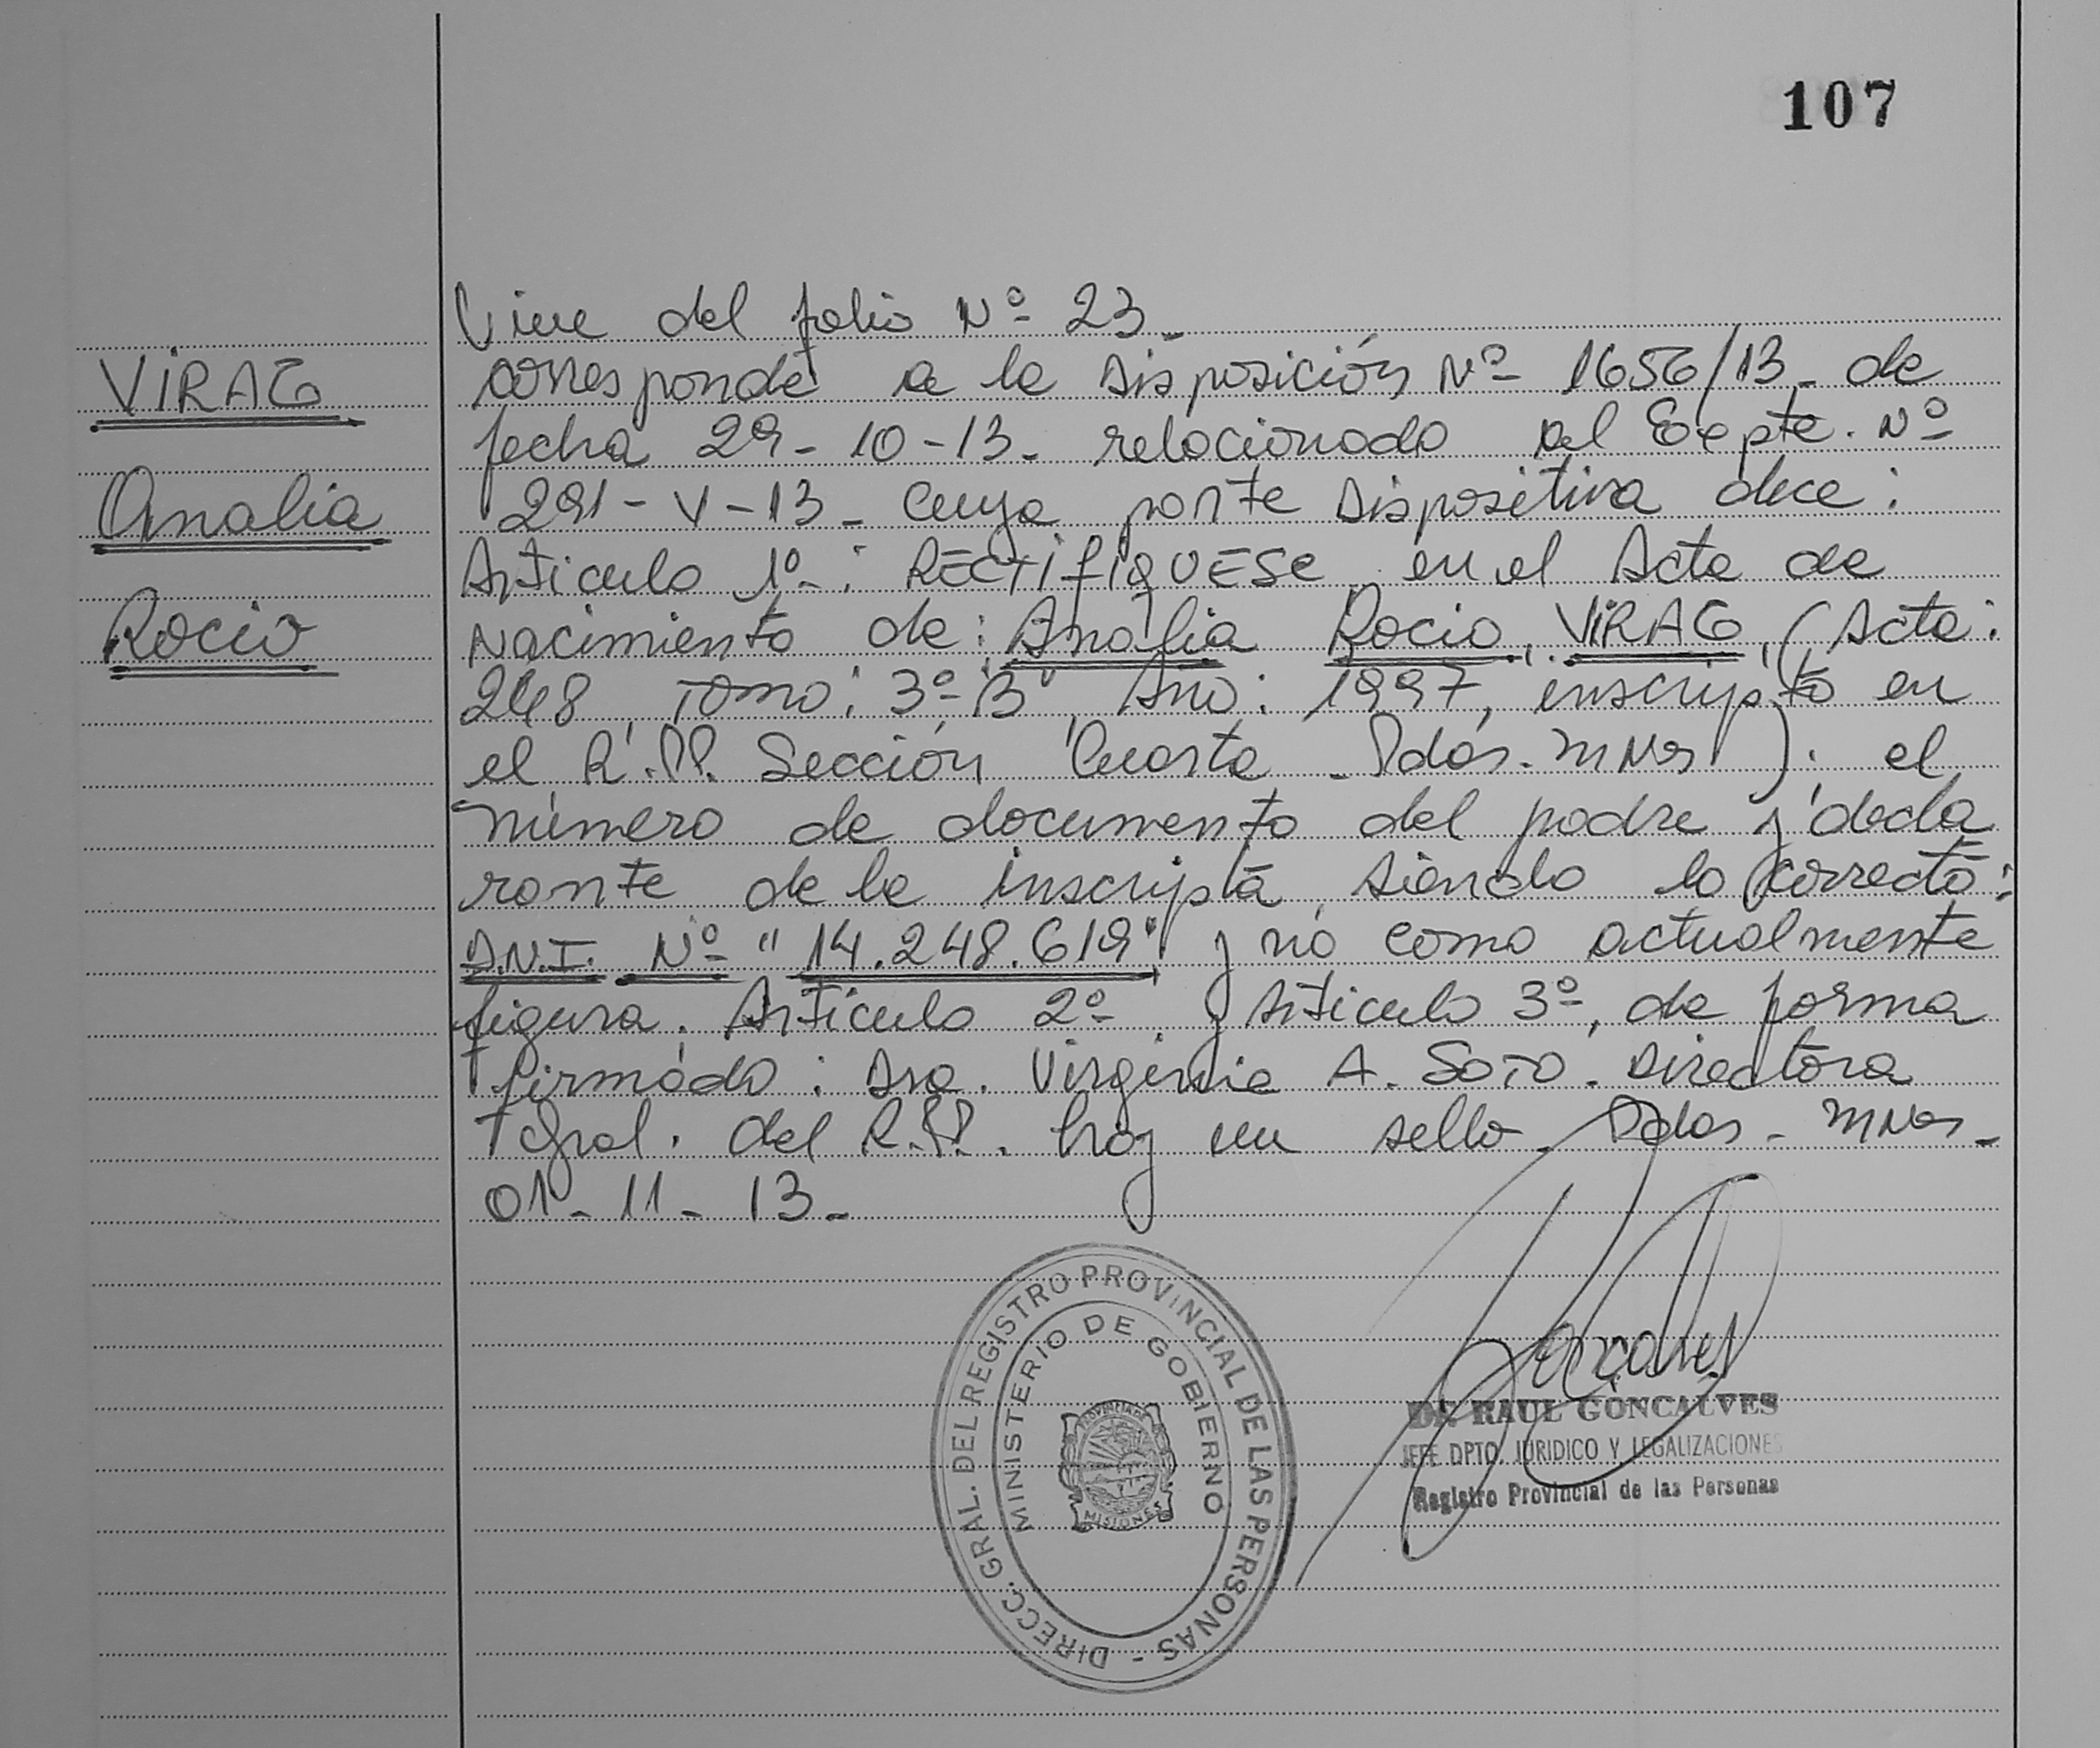 107
VIRAG
Analia
Rocio
Viene del folio Nº 23_
corresponde a la Disposición Nº 1656/13_ de
fecha 29-10-13_ relacionado al Expte. Nº
291-V-13_ Cuya parte Dispositiva dice:
Articulo 1º-: RECTIFIQUESE en el Acta de
Nacimiento de: Analia Rocio, VIRAG, (Acta:
248, Tomo: 3º"B", Año: 1997, inscripto en
el R.PP. Sección Cuarta - Pdas. Mnes). el
número de documento del padre y decla
rante de la inscripta, siendo lo correcto:
D.N.I. Nº "14.248.619" y no como actualmente
figura. Artículo 2º y Articulo 3º, de forma
firmado: Dra. Virginia A. SOTO. Directora
Gral. del R.PP. hay un sello_ Pdas - Mnes_
01-11-13_
DIRECC. GRAL. DEL REGISTRO PROVINCIAL DE LAS PERSONAS -
MINISTERIO DE GOBIERNO
PROVINCIA DE
MISIONES
Goncalves
DR. RAUL GONCALVES
JEFE DPTO. JURIDICO Y LEGALIZACIONES
Registro Provincial de las Personas